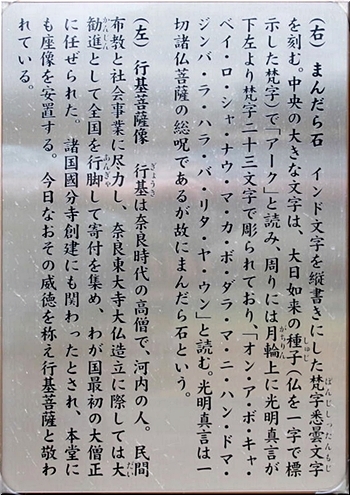 （右）まんだら石　インド文字を縦書きにした梵字悉曇文字
を刻む。中央の大きな文字は、大日如来の種子（仏を一字で標
示した梵字）で「アーク」と読み、周りには月輪上に光明真言が
下左より梵字二十三文字で彫られており、「オン・ア・ボ・キャ・
ベイ・ロ・シャ・ナウ・マ・カ・ボ・ダラ・マ・ニ・ハン・ドマ・
ジンバ・ラ・ハラ・バ・リタ・ヤ・ウン」と読む。光明真言は一
切諸仏菩薩の総呪であるが故にまんだら石という。
（左）行基菩薩像　行基は奈良時代の高僧で、河内の人。民間
布教と社会事業に尽力し、奈良東大寺大仏造立に際しては大
勧進として全国を行脚して寄付を集め、わが国最初の大僧正
に任ぜられた。諸国國分寺創建にも関わったとされ、本堂に
も座像を安置する。今日なおその威徳を称え行基菩薩と敬わ
れている。